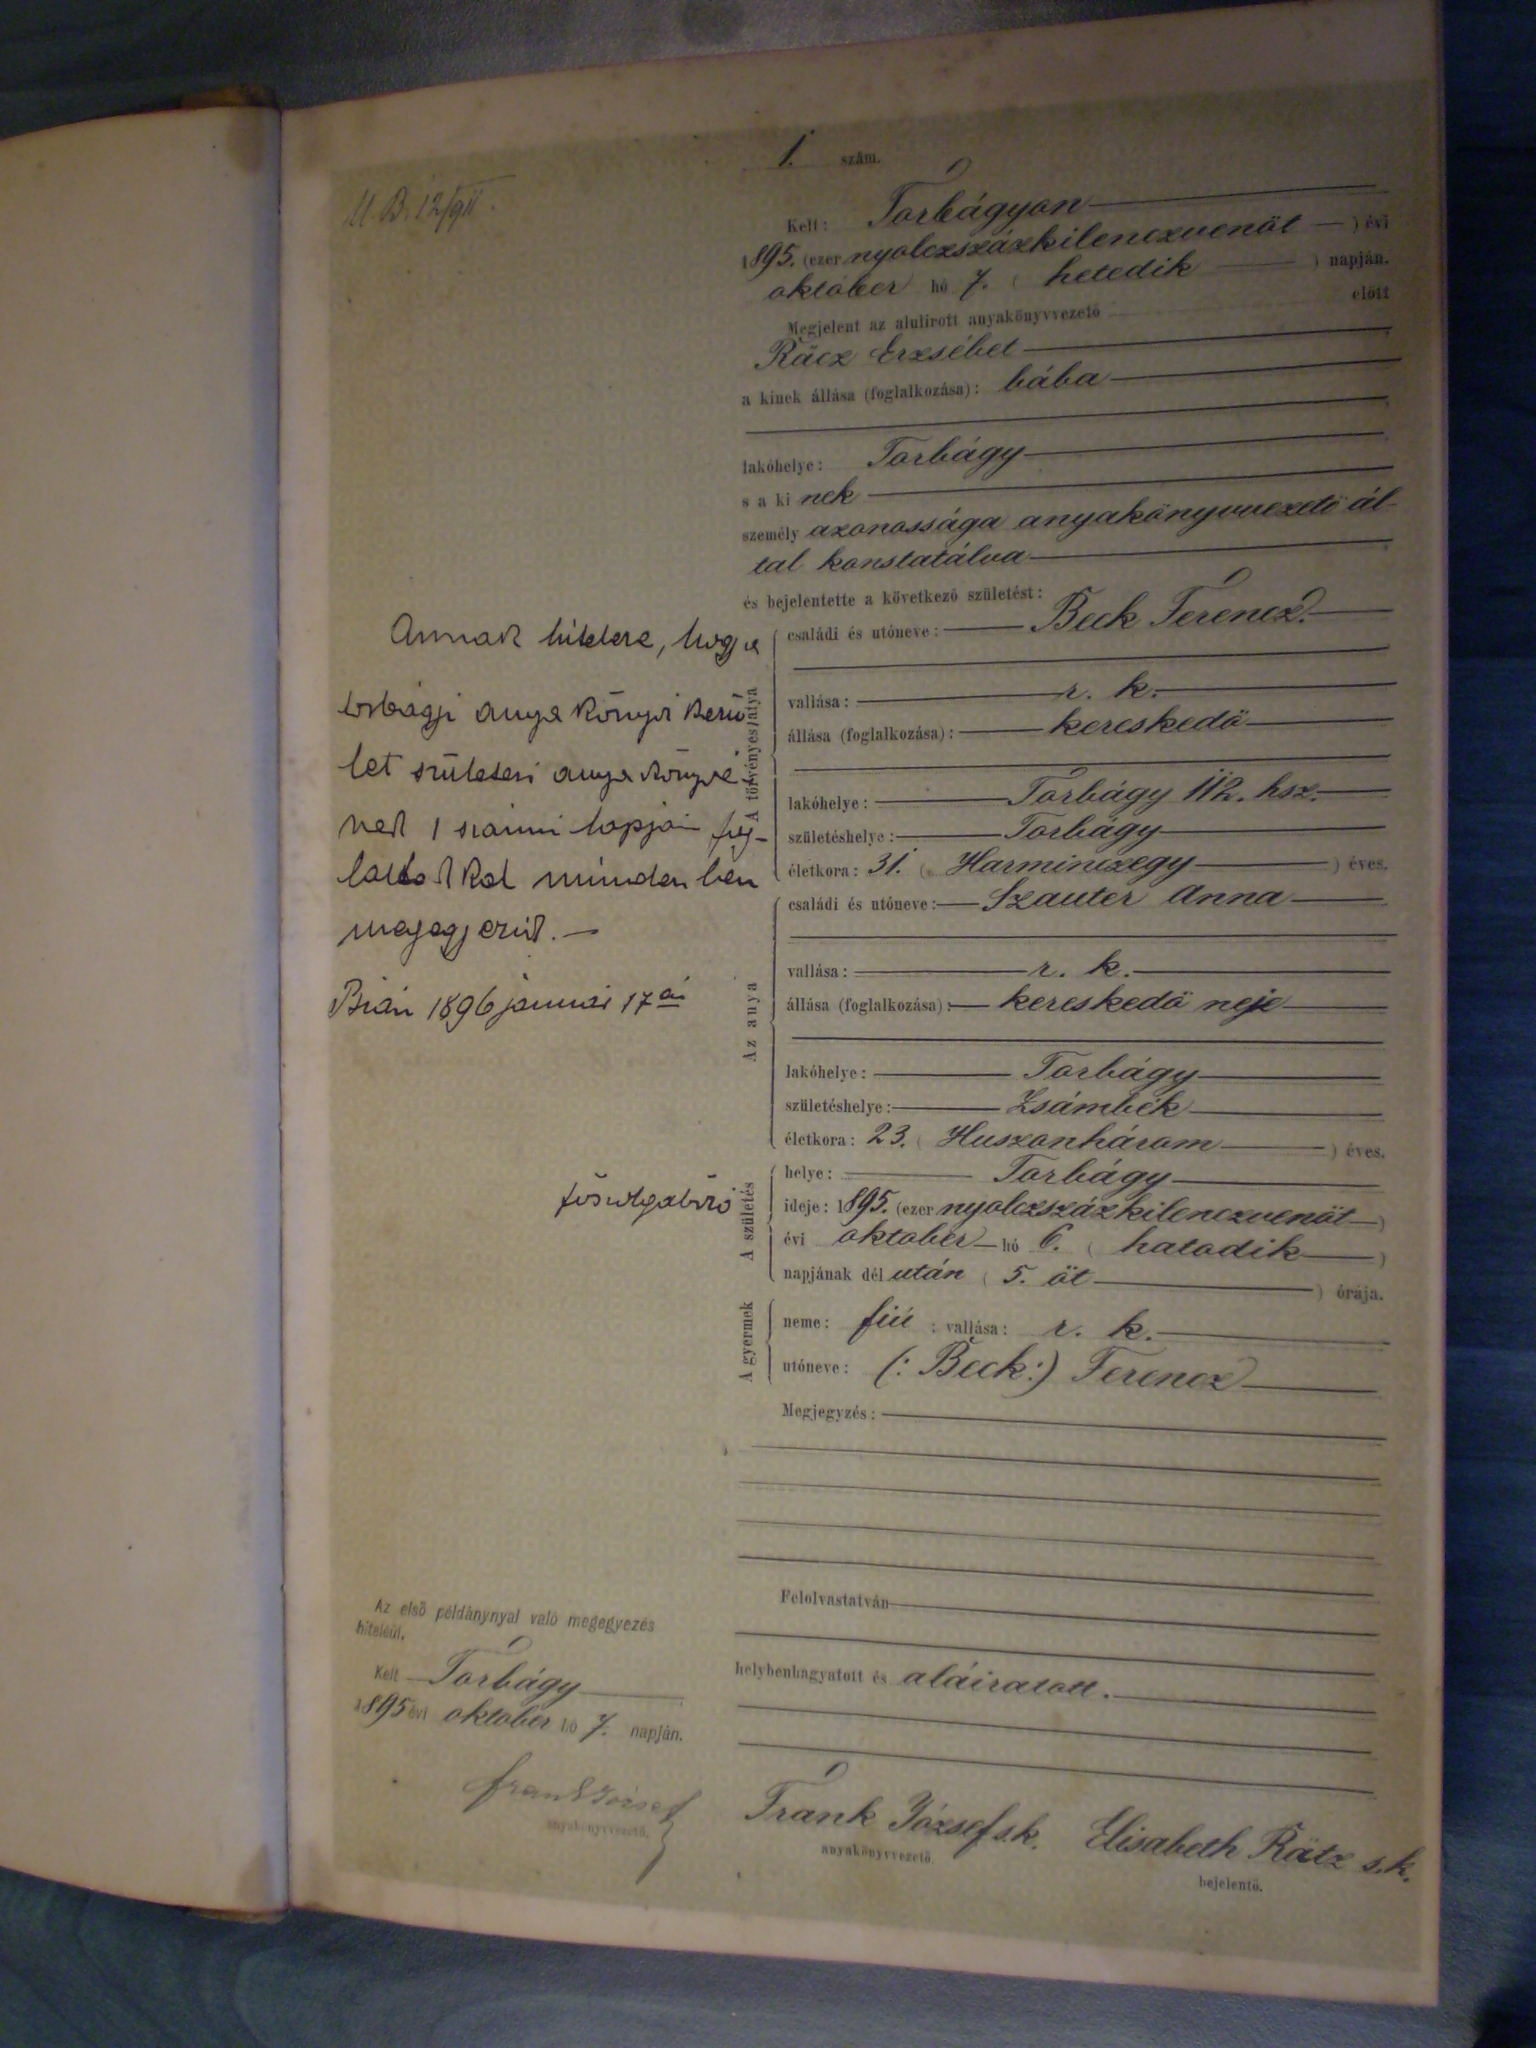 1. szám.
Kelt: Torbágyon
1895. (ezer nyolczszázkilenczvenöt) évi
október hó 7. (hetedik) napján.
Megjelent az alulirott anyakönyvvezető előtt
Rácz Erzsébet
a kinek állása (foglalkozása): bába
lakóhelye: Torbágy
s a ki nek
személy azonossága anyakönyvvezető ál-
tal konstatálva
és bejelentette a következő születést:
A törvényes atya
családi és utóneve: Beck Ferencz
vallása: r. k.
állása (foglalkozása): kereskedő
lakóhelye: Torbágy 112. hsz.
születéshelye: Torbágy
életkora: 31. (Harminczegy) éves.
Az anya
családi és utóneve: Szauter Anna
vallása: r. k.
állása (foglalkozása): kereskedő neje
lakóhelye: Torbágy
születéshelye: Zsámbék
életkora: 23. (Huszonhárom) éves.
A születés
helye: Torbágy
ideje: 1895. (ezer nyolczszázkilenczvenöt)
évi október hó 6. (hatodik)
napjának dél után (5. öt) órája.
A gyermek
neme: fiú ; vallása: r. k.
utóneve: (: Beck :) Ferencz
Megjegyzés:
Felolvastatván
helybenhagyatott és aláiratott.
Frank József s.k. Elisabeth Rätz s.k.
anyakönyvvezető. bejelentő.
Annak hitelére, hogy a
torbágyi anya könyvi kerü
let születési anya könyvé
nek 1 számu lapjai fog-
laltakkal mindenben
megegyezik. —
Bián 1896 január 17 én
főszolgabiró
Az első példánynyal való megegyezés
hiteléül.
Kelt Torbágy
1895 évi október hó 7. napján.
Frank József
anyakönyvvezető.